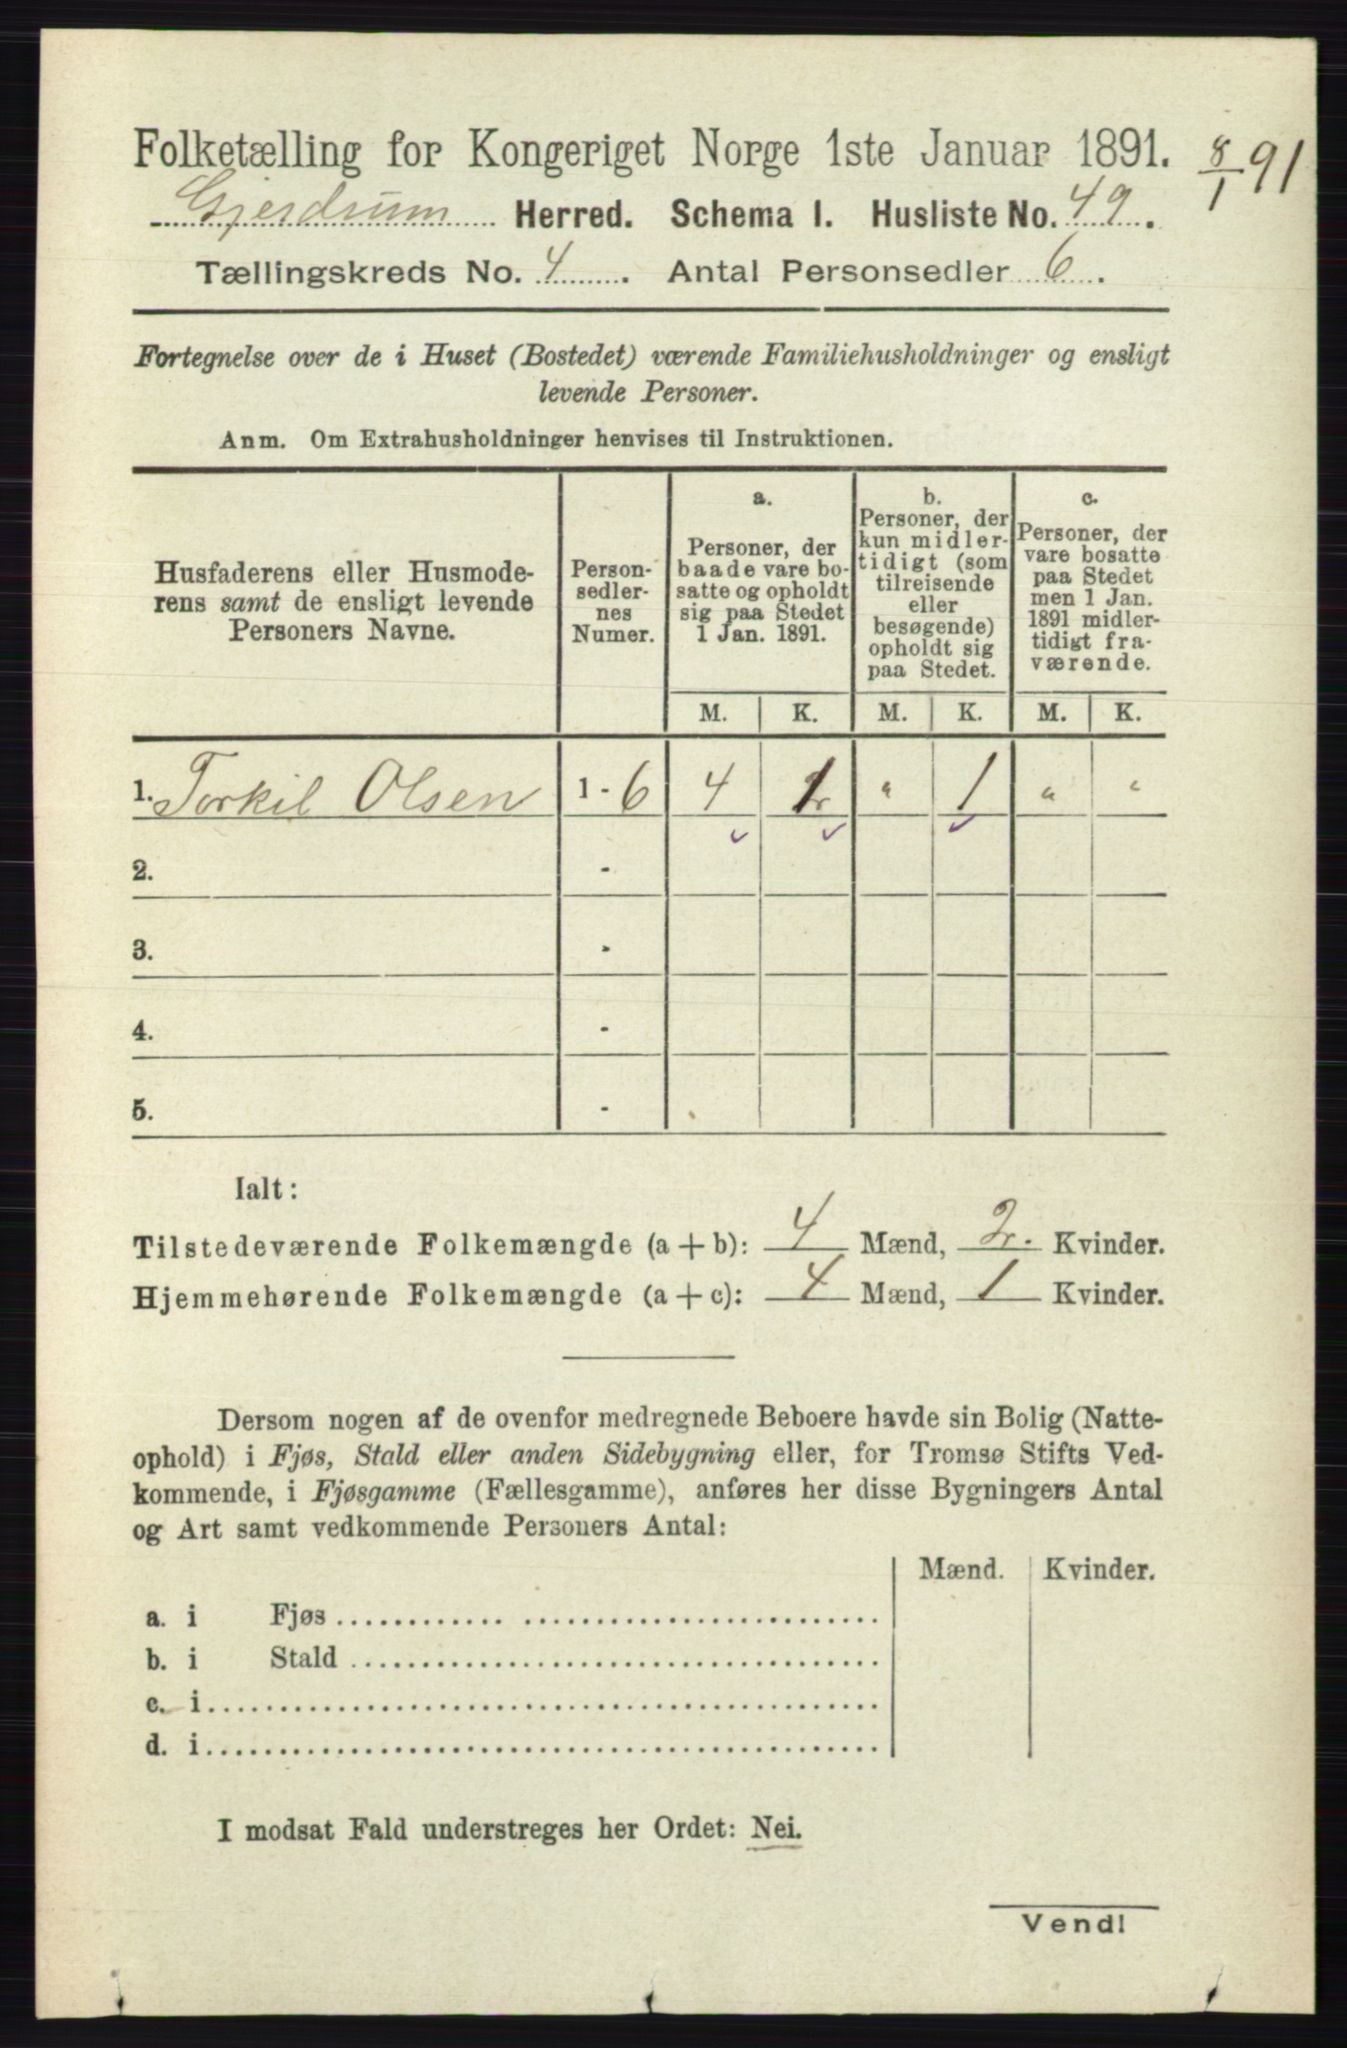 Folketælling for Kongeriget Norge 1ste Januar 1891. 8/1 91
Gjerdrum Herred. Schema I. Husliste No. 49.
Tællingskreds No. 4. Antal Personsedler 6.
Fortegnelse over de i Huset (Bostedet) værende Familiehusholdninger og ensligt
levende Personer.
Anm. Om Extrahusholdninger henvises til Instruktionen.
Husfaderens eller Husmode-
rens samt de ensligt levende
Personers Navne.
Person-
sedler-
nes
Numer.
a.
Personer, der
baade vare bo-
satte og opholdt
sig paa Stedet
1 Jan. 1891.
b.
Personer, der
kun midler-
tidigt (som
tilreisende
eller
besøgende)
opholdt sig
paa Stedet.
c.
Personer, der
vare bosatte
paa Stedet
men 1 Jan.
1891 midler-
tidigt fra-
værende.
M. K. M. K. M. K.
1. Torkil Olsen 1 - 6 4 1 " 1 " "
2. -
3. -
4. -
5. -
Ialt:
Tilstedeværende Folkemængde (a + b): 4 Mænd, 2. Kvinder.
Hjemmehørende Folkemængde (a + c): 4 Mænd, 1 Kvinder.
Dersom nogen af de ovenfor medregnede Beboere havde sin Bolig (Natte-
ophold) i Fjøs, Stald eller anden Sidebygning eller, for Tromsø Stifts Ved-
kommende, i Fjøsgamme (Fællesgamme), anføres her disse Bygningers Antal
og Art samt vedkommende Personers Antal:
Mænd. Kvinder.
a. i Fjøs
b. i Stald
c. i
d. i
I modsat Fald understreges her Ordet: Nei.
Vend!